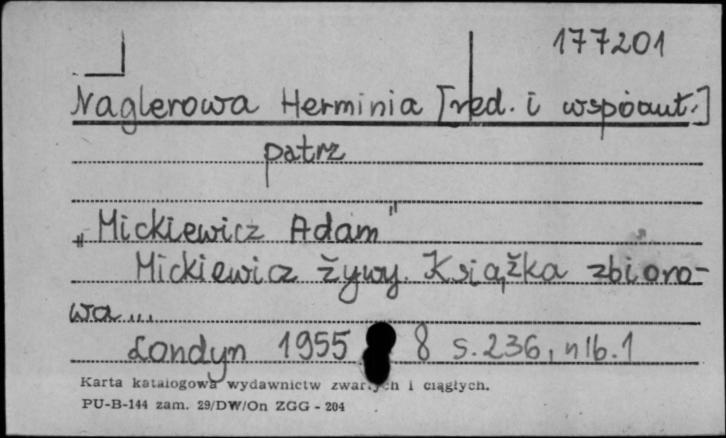 177201
Naglerowa Herminia [red. i wspóaut.]
patrz
„Mickiewicz Adam"
Mickiewicz żywy. Książka zbioro-
wa...
Londyn 1955 8 s. 236, nlb. 1
Karta katalogowa wydawnictw zwartych i ciągłych.
PU-B-144 zam. 29/DW/On ZGG - 204